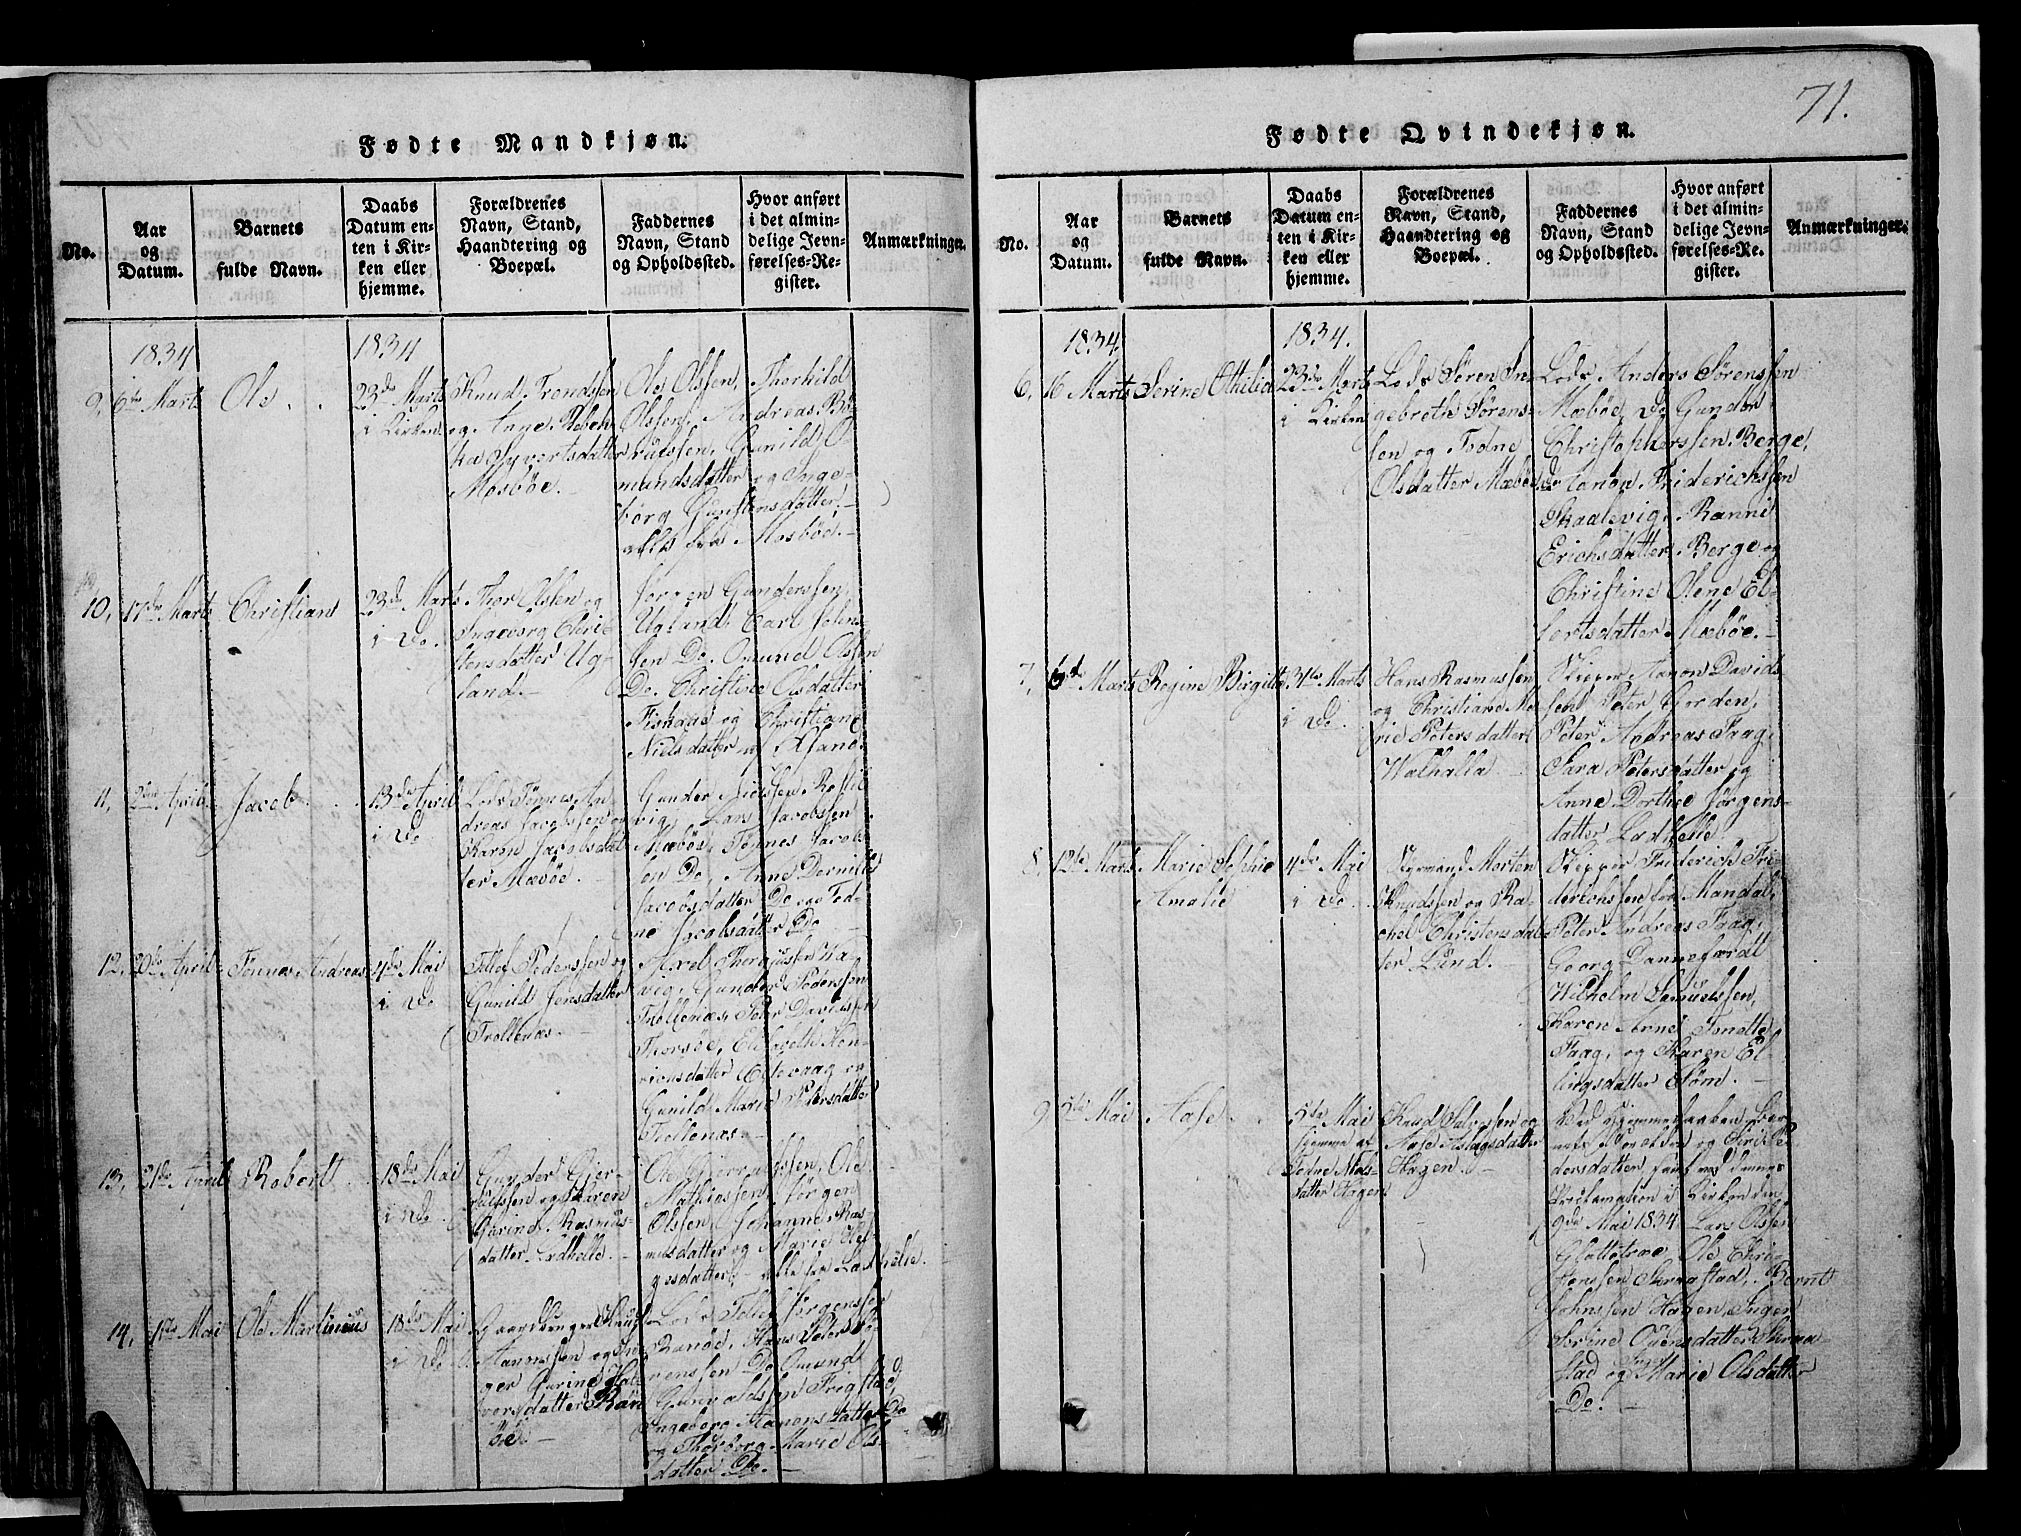 71.
Fødte Mandkjøn.
No.
Aar
og
Datum.
Barnets
fulde Navn.
Daabs
Datum en-
ten i Kir-
ken eller
hjemme.
Forældrenes
Navn, Stand,
Haandtering og
Boepæl.
Faddernes
Navn, Stand
og Opholdssted.
Hvor anført
i det almin-
delige Jevn-
førelses-Re-
gister.
Anmærkninger.
1834
1834
9,
6te Marts
Ole
23de Marts
i Kirken
Knud Trondssen
og Anne Rebek-
ka Syvertsdatter
Mosböe.
Ole Olssen, Thorkild
Olssen, Andreas Bö-
rulssen, Gunild O-
mundsdatter og Inge-
borg Gunstensdatter,
alle fra Mosböe.
10,
17de Marts
Christian
23de Marts
i Do.
Thor Olssen og
Ingeborg Chri-
stensdatter Ug-
land.
Jörgen Gunderssen
Ugland, Carl Johns-
sen Do. Omund Olssen
Do. Christine Olsdatter
Fiskaae og Christiane
Nielsdatter af Chsand.
11,
April
Jacob
13de April
i Do
Lods Tönnes An-
dreas Jacobssen og
Karen Jacobsdat-
ter Mæböe.
Gunder Nielssen Rossе-
vig, Lars Jacobssen
Mæböe, Tönnes Jacobs-
sen Do, Anne Dorniles
Jacobsdatter Do og Tod-
ne Jacobsdatter Do
12,
20de April
Tönnes Andreas
4de Mai
i Do
Tellef Pederssen og
Gunild Jensdatter
Trollenæs.
Axel Thergussen Ka-
vig, Gunder Pederssen
Trollenæs, Peder Davidssen
Thorsöe, Elisabeth Hen-
richsdatter Eg
Gunild Marie Pedersdatter
Trollenæs.
13,
21de April
Robert
18de Mai
i Do.
Gunder Gjer-
uldssen og Karen
Gurine Rasmus-
datter Ladhelle.
Ole Gjeruldssen, Ole
Mathiassen, Jörgen
Olssen, Johanne Ras-
musdatter og Marie Ol-
gesdatter, alle fra Ladhelle.
14,
1ste Mai
Ole Martinius
18de Mai
i Do
Gaardbruger Knud
Aanenssen og In-
ger Gurine Hal-
vorsdatter Ran-
öe.
Lods Tellef Jörgenssen
Ranöe, Hans Peter Sö-
renssen Do, Omund
Gunvaldssen Frigstad,
Ingeborg Aanonsdatter Do
og Thorborg Marie Ols-
datter Do.
Fødte Qvindekjøn.
No.
Aar
og
Datum.
Barnets
fulde Navn.
Daabs
Datum en-
ten i Kir-
ken eller
hjemme.
Forældrenes
Navn, Stand,
Haandtering og
Boepæl.
Faddernes
Navn, Stand
og Opholdssted.
Hvor anført
i det almin-
delige Jevn-
førelses-Re-
gister.
Anmærkninger.
1834.
1834.
6,
16 Marts
Serine Ottilia
23de Marts
i Kirken
Lods Sören In-
gebreth Sörens-
sen og Todne
Olsdatter Mæböe
Lods Anders Sörenssen
Mæböe, Do Gunder
Christopherssen Berge,
Do Aanon Friderichssen
Skaalevig, Ranni
Erichsdatter Berge og
Christine Olene El-
lertsdatter Mæböe.
7,
6te Marts
Regine Birgitte
31te Marts
i Do.
Hans Rasmussen
og Christiane Ma-
rie Petersdatter
Walhalla.
Skipper Aanon Davids-
sen, Peter Gorden,
Peter Andreas Faag,
Sara Petersdatter og
Anne Dorthee Jörgens-
datter Ladhelle.
8,
12te Marts
Marie Sophie
Amalie
4de Mai
i Do.
Styrmand Morten
Knudssen og Ra-
chel Christensdat-
ter Lund.
Skipper Friderich Fri-
derichssen fra Mandal,
Peter Andreas Faag,
Georg Dannefærdt
Wilhelm Samuelssen,
Karen Anne Tonette
Faag, og Karen El-
lingsdatter Söm.
9,
5te Mai
Aase
5te Mai
hjemme af
Todne Niels-
datter Hagen
Knud Salvessen og
Aase Aslagsdatter
Hagen.
Ved Hjemmedaaben Bar-
nets Forældre og Siri Pe-
dersdatter, samt ved dennes
Proklamation i Kirken den
9de Mai 1834 Lars Olssen
Glattetræe, Ole Chri-
stenssen Skraastad, Bernt
Johnssen Hagen, Inger
Serine Ovensdatter Skraa-
stad og Inger Marie Olsdatter
Do.